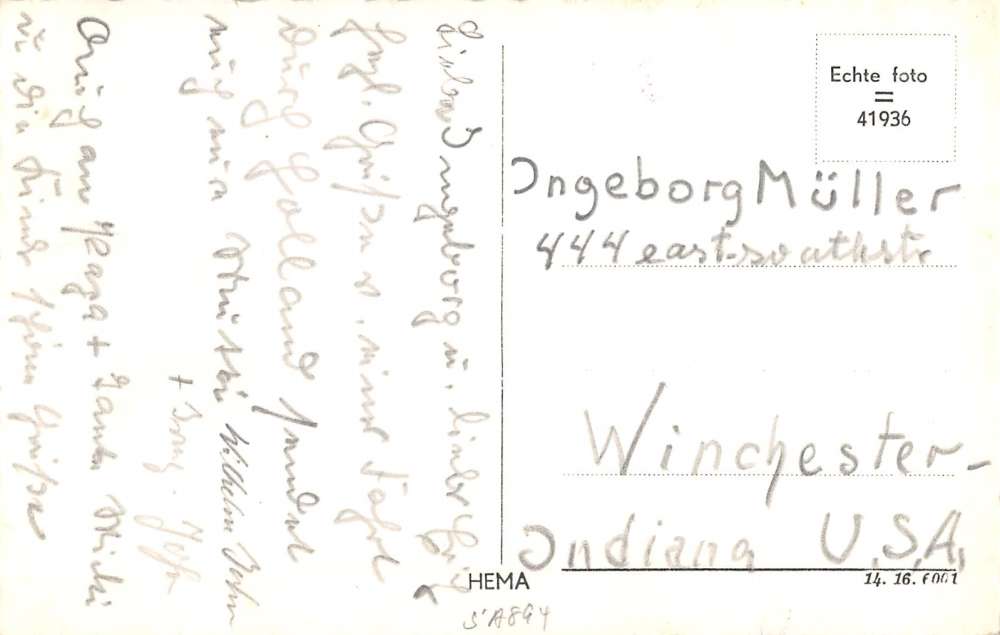 Liebe Ingeborg u. lieber
Herzl. Grüße v. einer Fahrt
durch Holland sendet
Wilhelm
+
Auch an + Tante
u die Kinder schöne Grüße
Echte foto
=
41936
Ingeborg Müller
444 east-southstr
Winchester-
Indiana U.S.A.
HEMA
14. 16. 6001